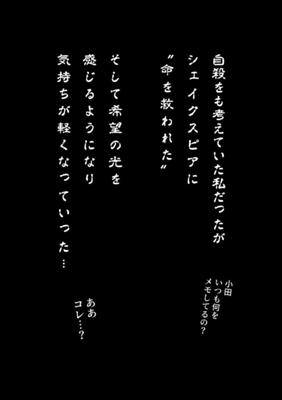 自殺をも考えていた私だったが
シェイクスピアに
〝命を救われた〟
そして希望の光を
感じるようになり
気持ちが軽くなっていった…
小田
いつも何を
メモしてるの?
ああ
コレ…?